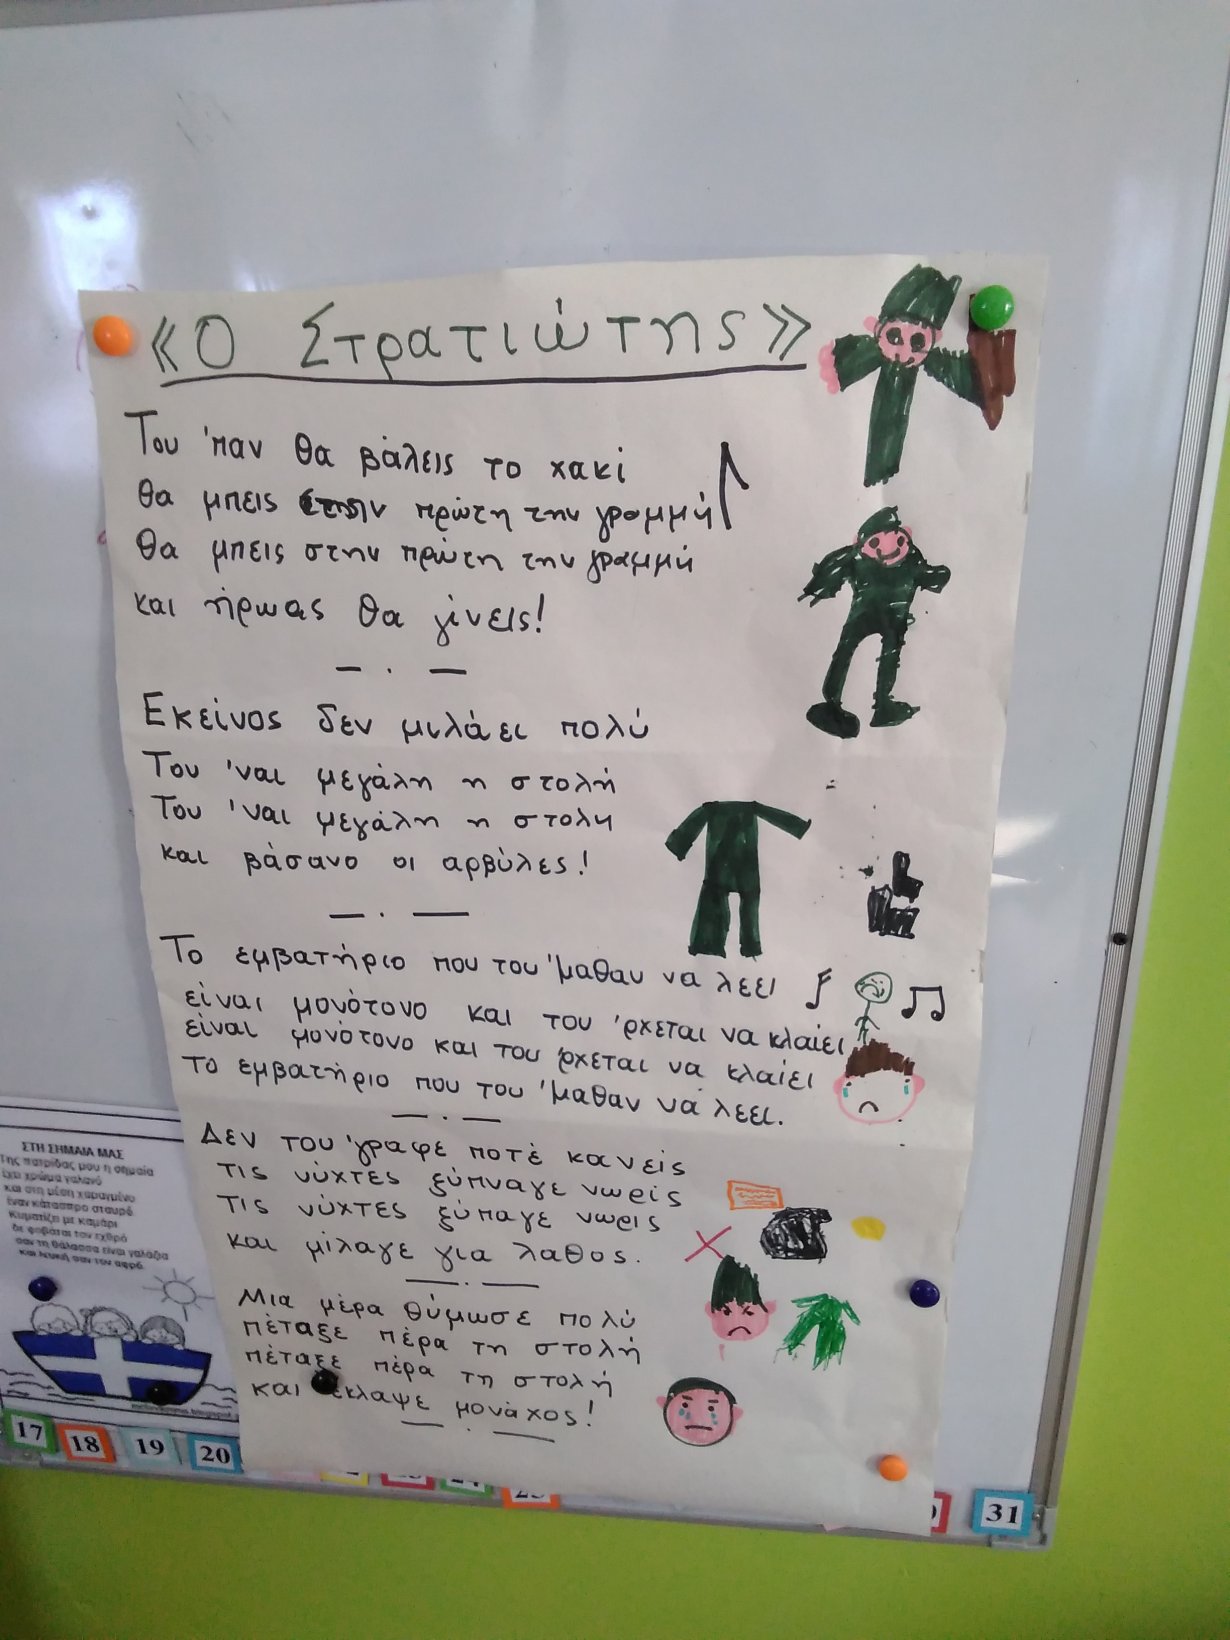 «Ο Στρατιώτης»
Του 'παν θα βάλεις το χακί
θα μπεις στην πρώτη την γραμμή
θα μπεις στην πρώτη την γραμμή
και ήρωας θα γίνεις!
— . —
Εκείνος δεν μιλάει πολύ
Του 'ναι μεγάλη η στολή
Του 'ναι μεγάλη η στολη
και βάσανο οι αρβύλες!
— . —
Το εμβατήριο που του 'μαθαν να λεει
είναι μονότονο και του 'ρχεται να κλαίει
είναι μονότονο και του 'ρχεται να κλαίει
το εμβατήριο που του 'μαθαν να λεει.
— . —
Δεν του 'γραφε ποτέ κανείς
τις νύχτες ξύπναγε νωρίς
τις νύχτες ξύπαγε νωρις
και μίλαγε για λαθος.
— . —
Μια μέρα θύμωσε πολύ
πέταξε πέρα τη στολή
πέταξε πέρα τη στολή
και έκλαψε μονάχος!
— . —
ΣΤΗ ΣΗΜΑΙΑ ΜΑΣ
Της πατρίδας μου η σημαία
έχει χρώμα γαλανό
και στη μέση χαραγμένο
έναν κάτασπρο σταυρό
Κυματίζει με καμάρι
δε φοβάται τον εχθρό
σαν τη θάλασσα είναι γαλάζια
και λευκή σαν τον αφρό.
17 18 19 20
31